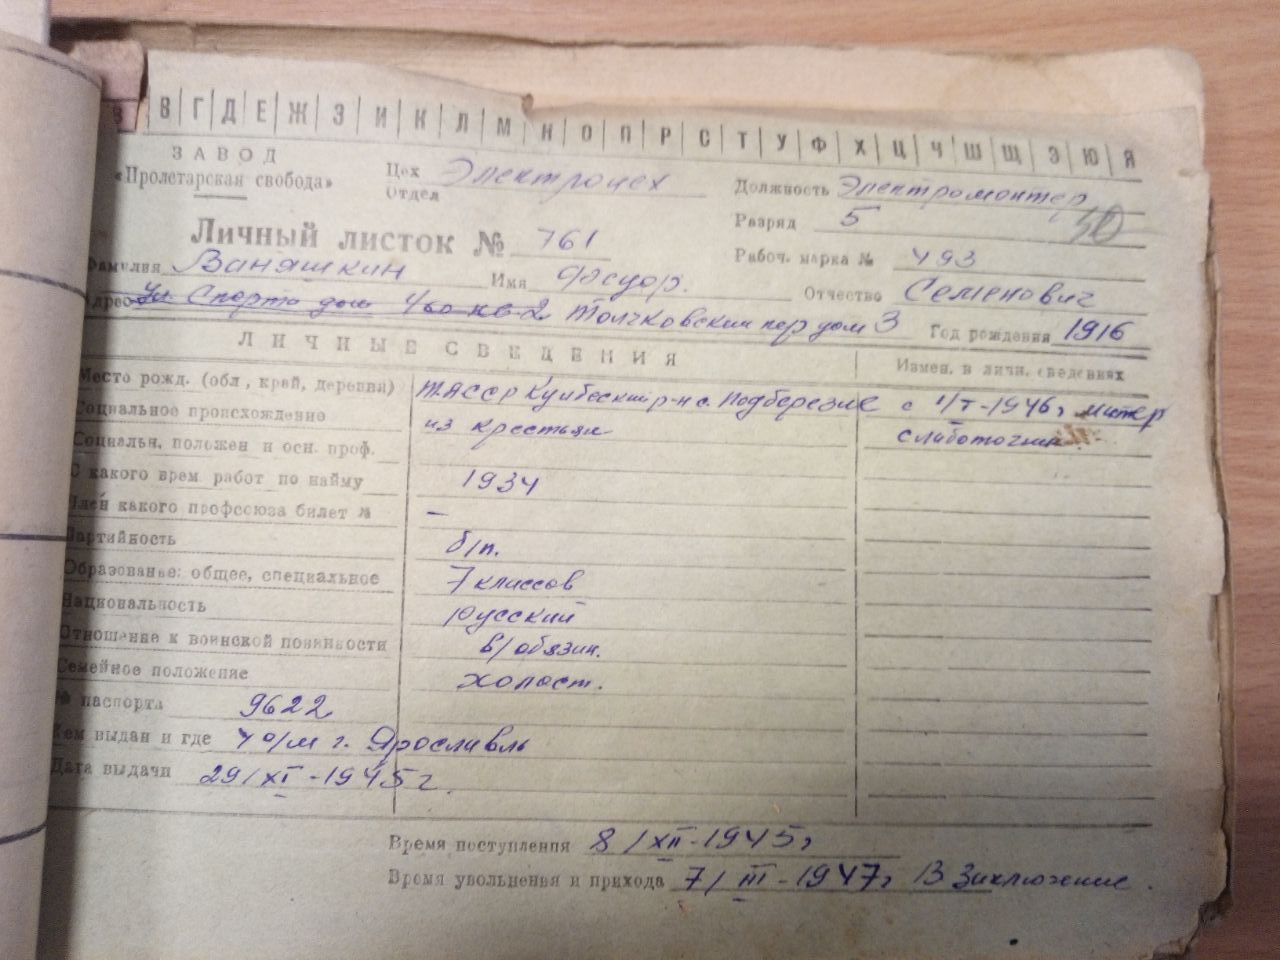 В Г Д Е Ж З И К Л М Н О П Р С Т У Ф Х Ц Ч Ш Щ Э Ю Я
ЗАВОД
«Пролетарская свобода»
Цех Электроцех
Отдел
Должность Электромонтер
Разряд 5
50
Личный листок № 761
Рабоч. марка № 493
Фамилия Ваняшкин Имя Федор. Отчество Семенович
Адрес Ул Спорта дом 4/60 кв 2 Толчковский пер дом 3 Год рождения 1916
ЛИЧНЫЕ СВЕДЕНИЯ
Измен. в личн. сведениях
Место рожд. (обл, край, деревня) ТАССР р-н с. Подберезие
с 1/I-1946г мастер
Социальное происхождение из крестьян
слаботочник
Социальн. положен и осн. проф.
С какого врем работ по найму 1934
Член какого профсоюза билет № —
Партийность б/п.
Образованье: общее, специальное 7 классов
Национальность Русский
Отношение к воинской повинности в/обязан.
Семейное положение холост.
№ паспорта 9622
Кем выдан и где 4 о/м г. Ярославль
Дата выдачи 29/XI-1945г.
Время поступления 8/XII-1945г
Время увольненья и прихода 7/III-1947г В Заключение.